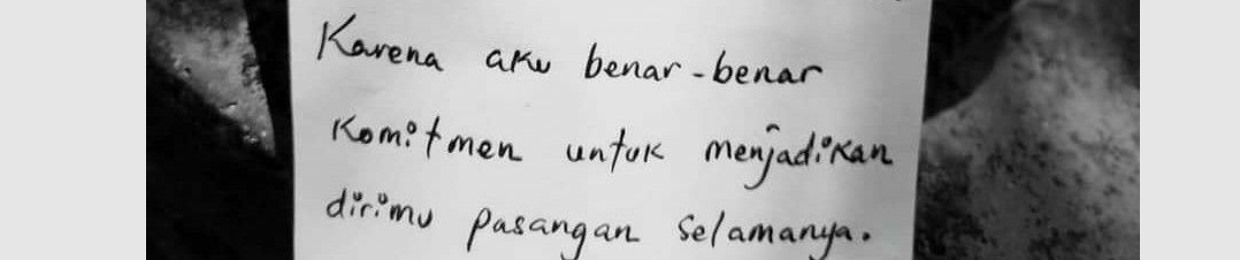 Karena aku benar-benar
Komitmen untuk menjadikan
dirimu pasangan selamanya.